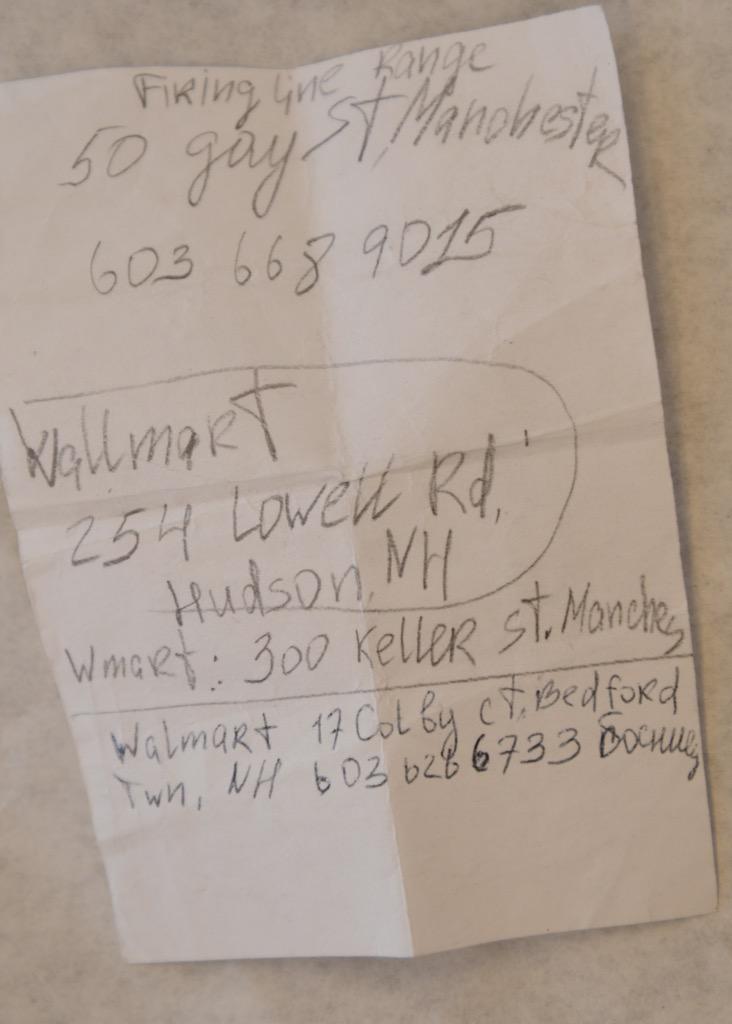 Firing Line Range
50 gay St, Manchester
603 668 9015
Wallmart
254 Lowell Rd,
Hudson, NH
Wmart: 300 Keller st. Manches
Walmart 17 Colby ct, Bedford
Twn, NH 603 626 6733